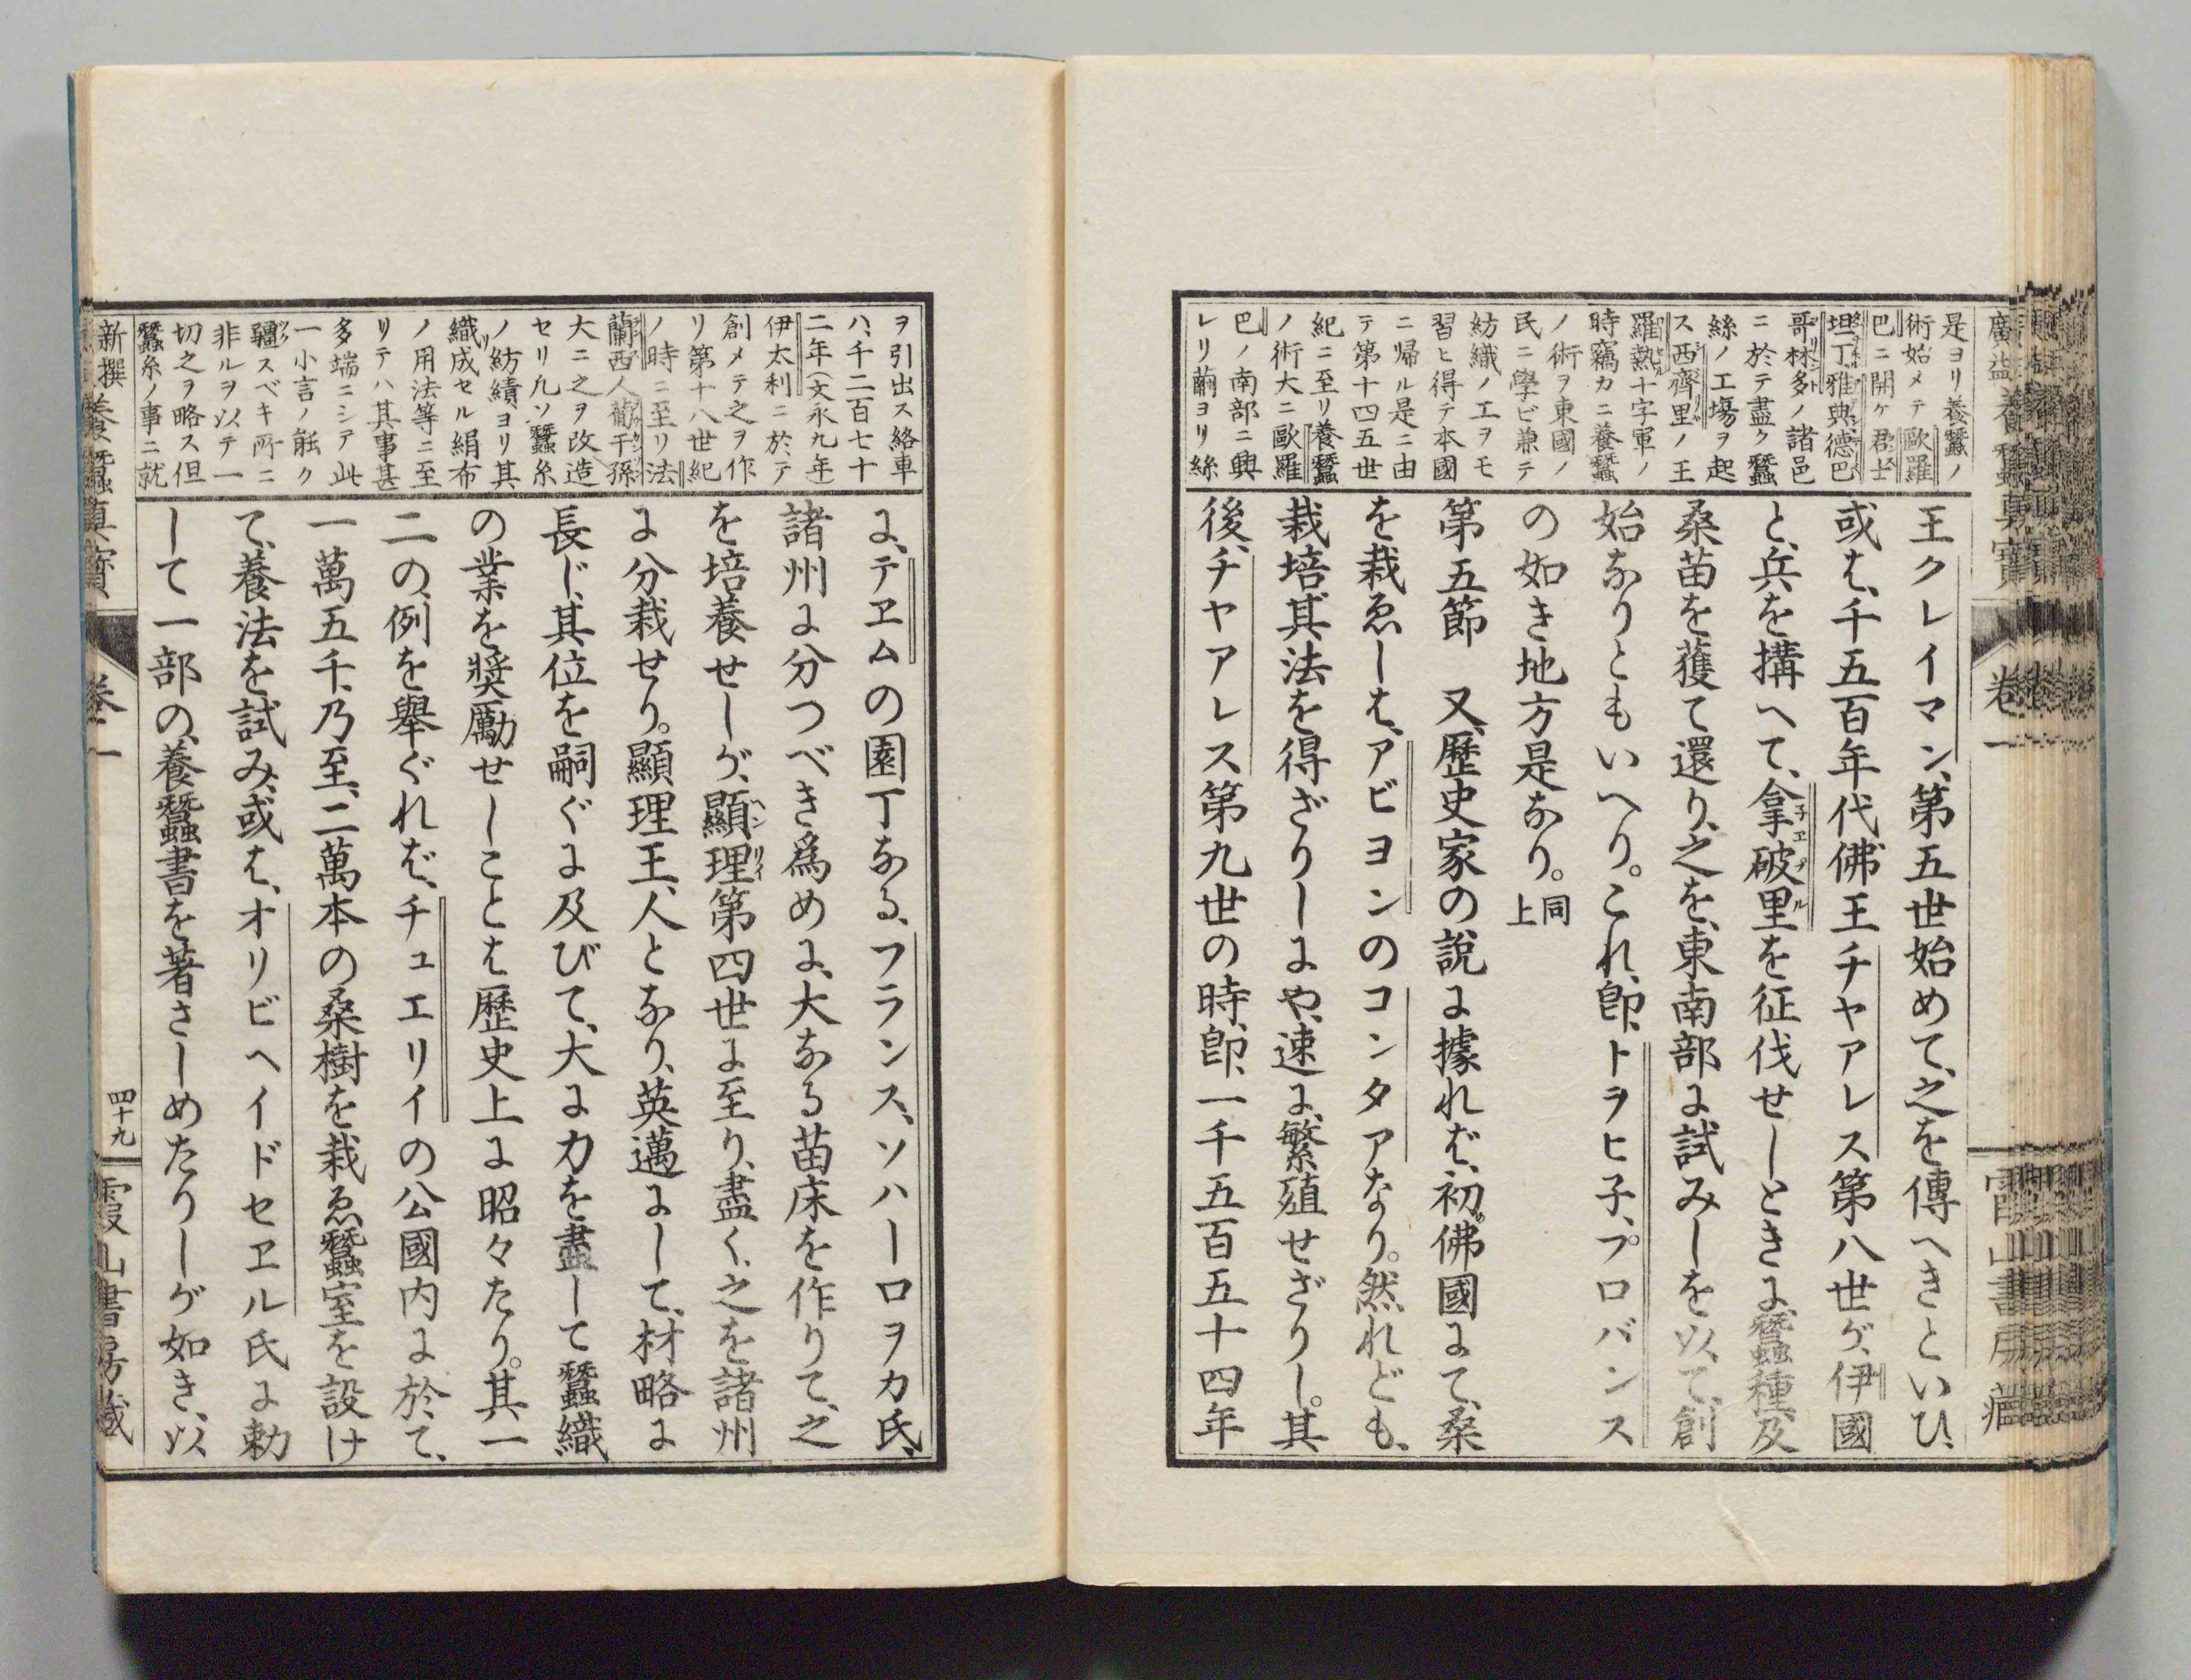 是ヨリ養蠶ノ
術始メテ歐羅
巴ニ開ケ君士
坦丁雅典德巴
哥林多ノ諸邑
ニ於テ盡ク蠶
絲ノ工塲ヲ起
ス西齊里ノ王
羅熱十字軍ノ
時竊カニ養蠶
ノ術ヲ東國ノ
民ニ學ビ兼テ
紡織ノ工ヲモ
習ヒ得テ本國
ニ帰ル是ニ由
テ第十四五世
紀ニ至リ養蠶
ノ術大ニ歐羅
巴ノ南部ニ興
レリ繭ヨリ絲
王クレイマン、第五世始めて、之を傳へきといひ、
或は、千五百年代佛王チヤアレス第八世が、伊國
と、兵を搆へて、拿破里を征伐せしときに、蠶種及
桑苗を獲て還り、之を、東南部に試みしを以て、創
始なりともいへり。これ、即、トヲヒ子、プロバンス
の如き地方是なり。同上
第五節 又、歷史家の說に據れば、初、佛國にて、桑
を栽ゑしは、アビヨンのコンタアなり。然れども、
栽培其法を得ざりしにや、速に、繁殖せざりし。其
後、チヤアレス第九世の時、即、一千五百五十四年
卷一
ヲ引出ス絡車
ハ、千二百七十
二年(文永九年)
伊太利ニ於テ
創メテ之ヲ作
リ第十八世紀
ノ時ニ至リ法
蘭西人葡干孫
大ニ之ヲ改造
セリ凡ソ蠶糸
ノ紡績ヨリ其
織成セル絹布
ノ用法等ニ至
リテハ其事甚
多端ニシテ此
一小言ノ能ク
疆スベキ所ニ
非ルヲ以テ一
切之ヲ略ス但
蠶糸ノ事ニ就
に、テヱムの園丁なる、フランス、ソハーロヲカ氏、
諸州に分つべき爲めに、大なる苗床を作りて、之
を培養せしが、顯理第四世に至り、盡く、之を諸州
に分栽せり。顯理王、人となり、英邁にして、材略に
長じ、其位を嗣ぐに及びて、大に力を盡して蠶織
の業を奬勵せしことは歷史上に昭々たり。其一
二の、例を擧ぐれば、チュエリイの公國内に於て、
一萬五千、乃至、二萬本の桑樹を栽ゑ蠶室を設け
て、養法を試み、或は、オリビヘイドセヱル氏に勅
して一部の、養蠶書を著さしめたりしが如き、以
新撰養蠶真寶
卷一
四十九
霞山書房藏